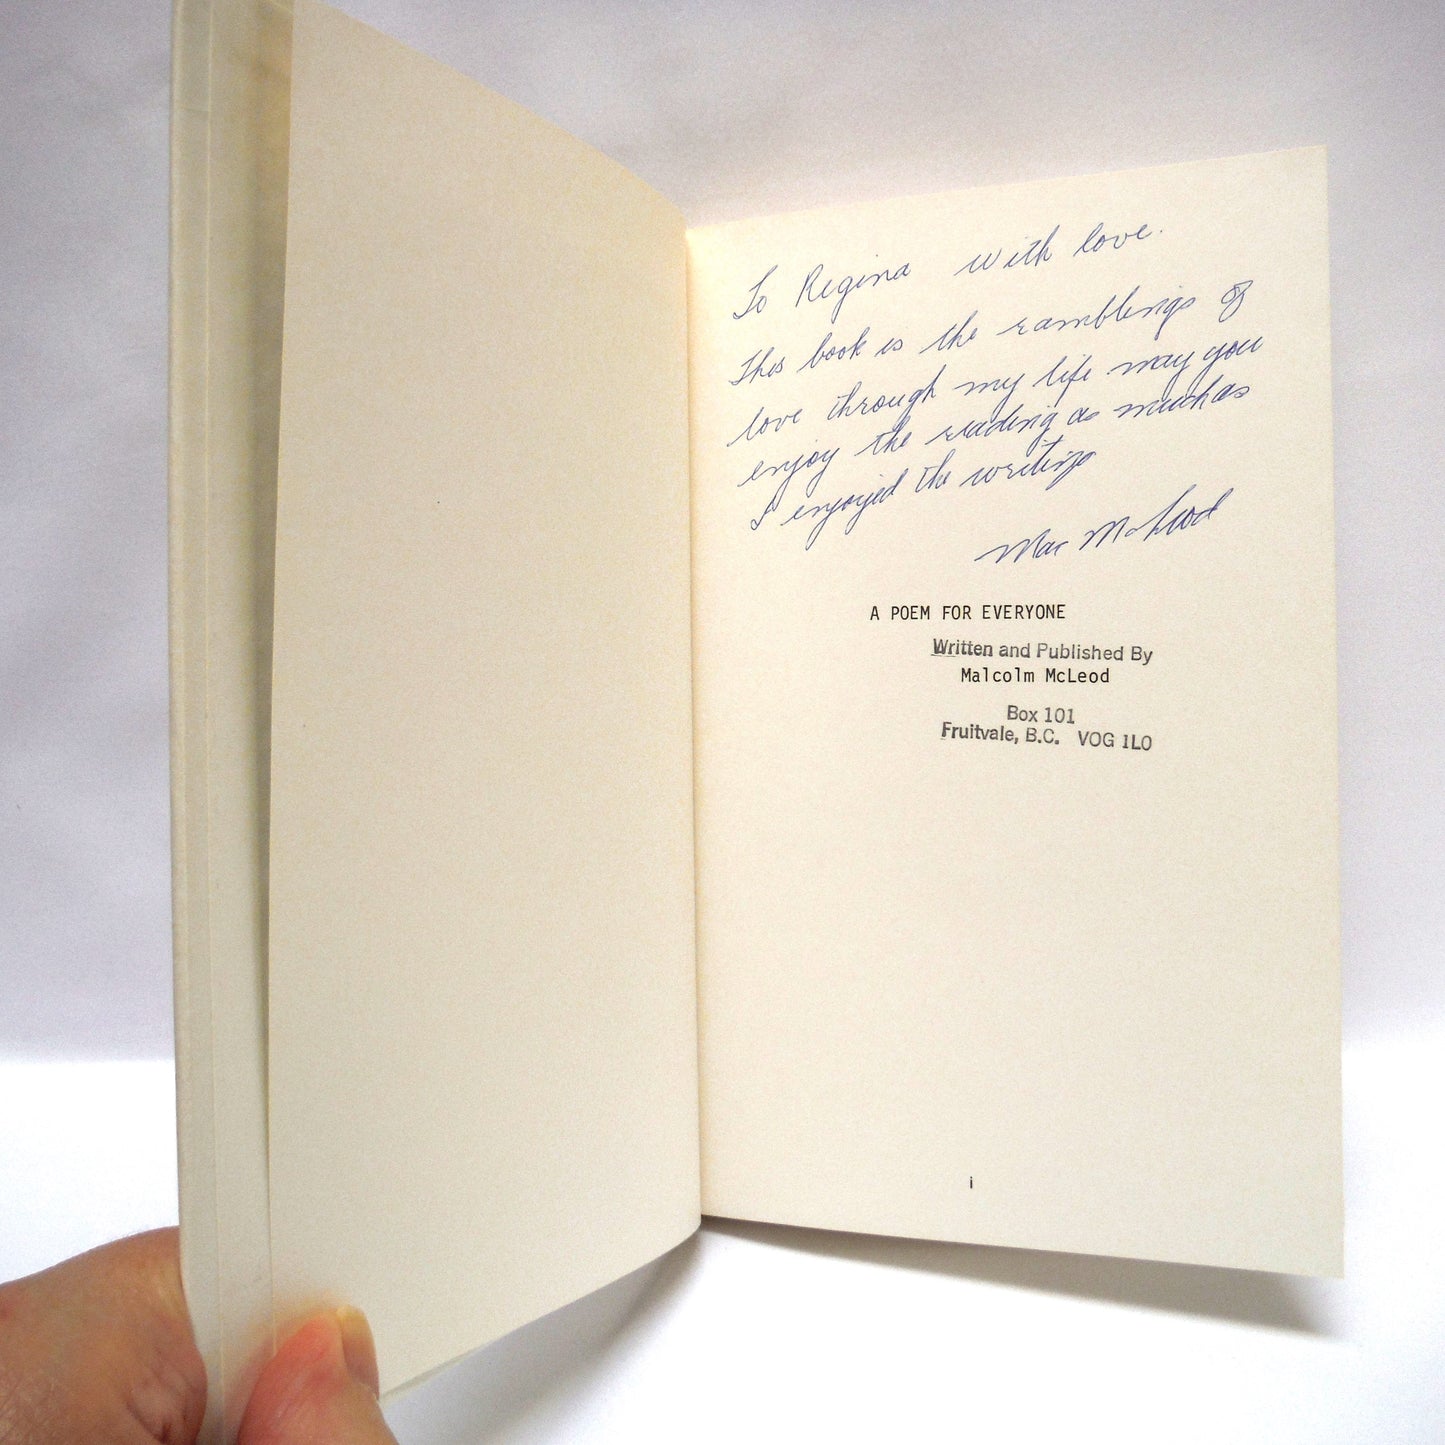 To Regina with love.
This book is the ramblings of
love through my life may you
enjoy the reading as much as
I enjoyed the writing
Mac McLeod
A POEM FOR EVERYONE
Written and Published By
Malcolm McLeod
Box 101
Fruitvale, B.C. VOG 1L0
i